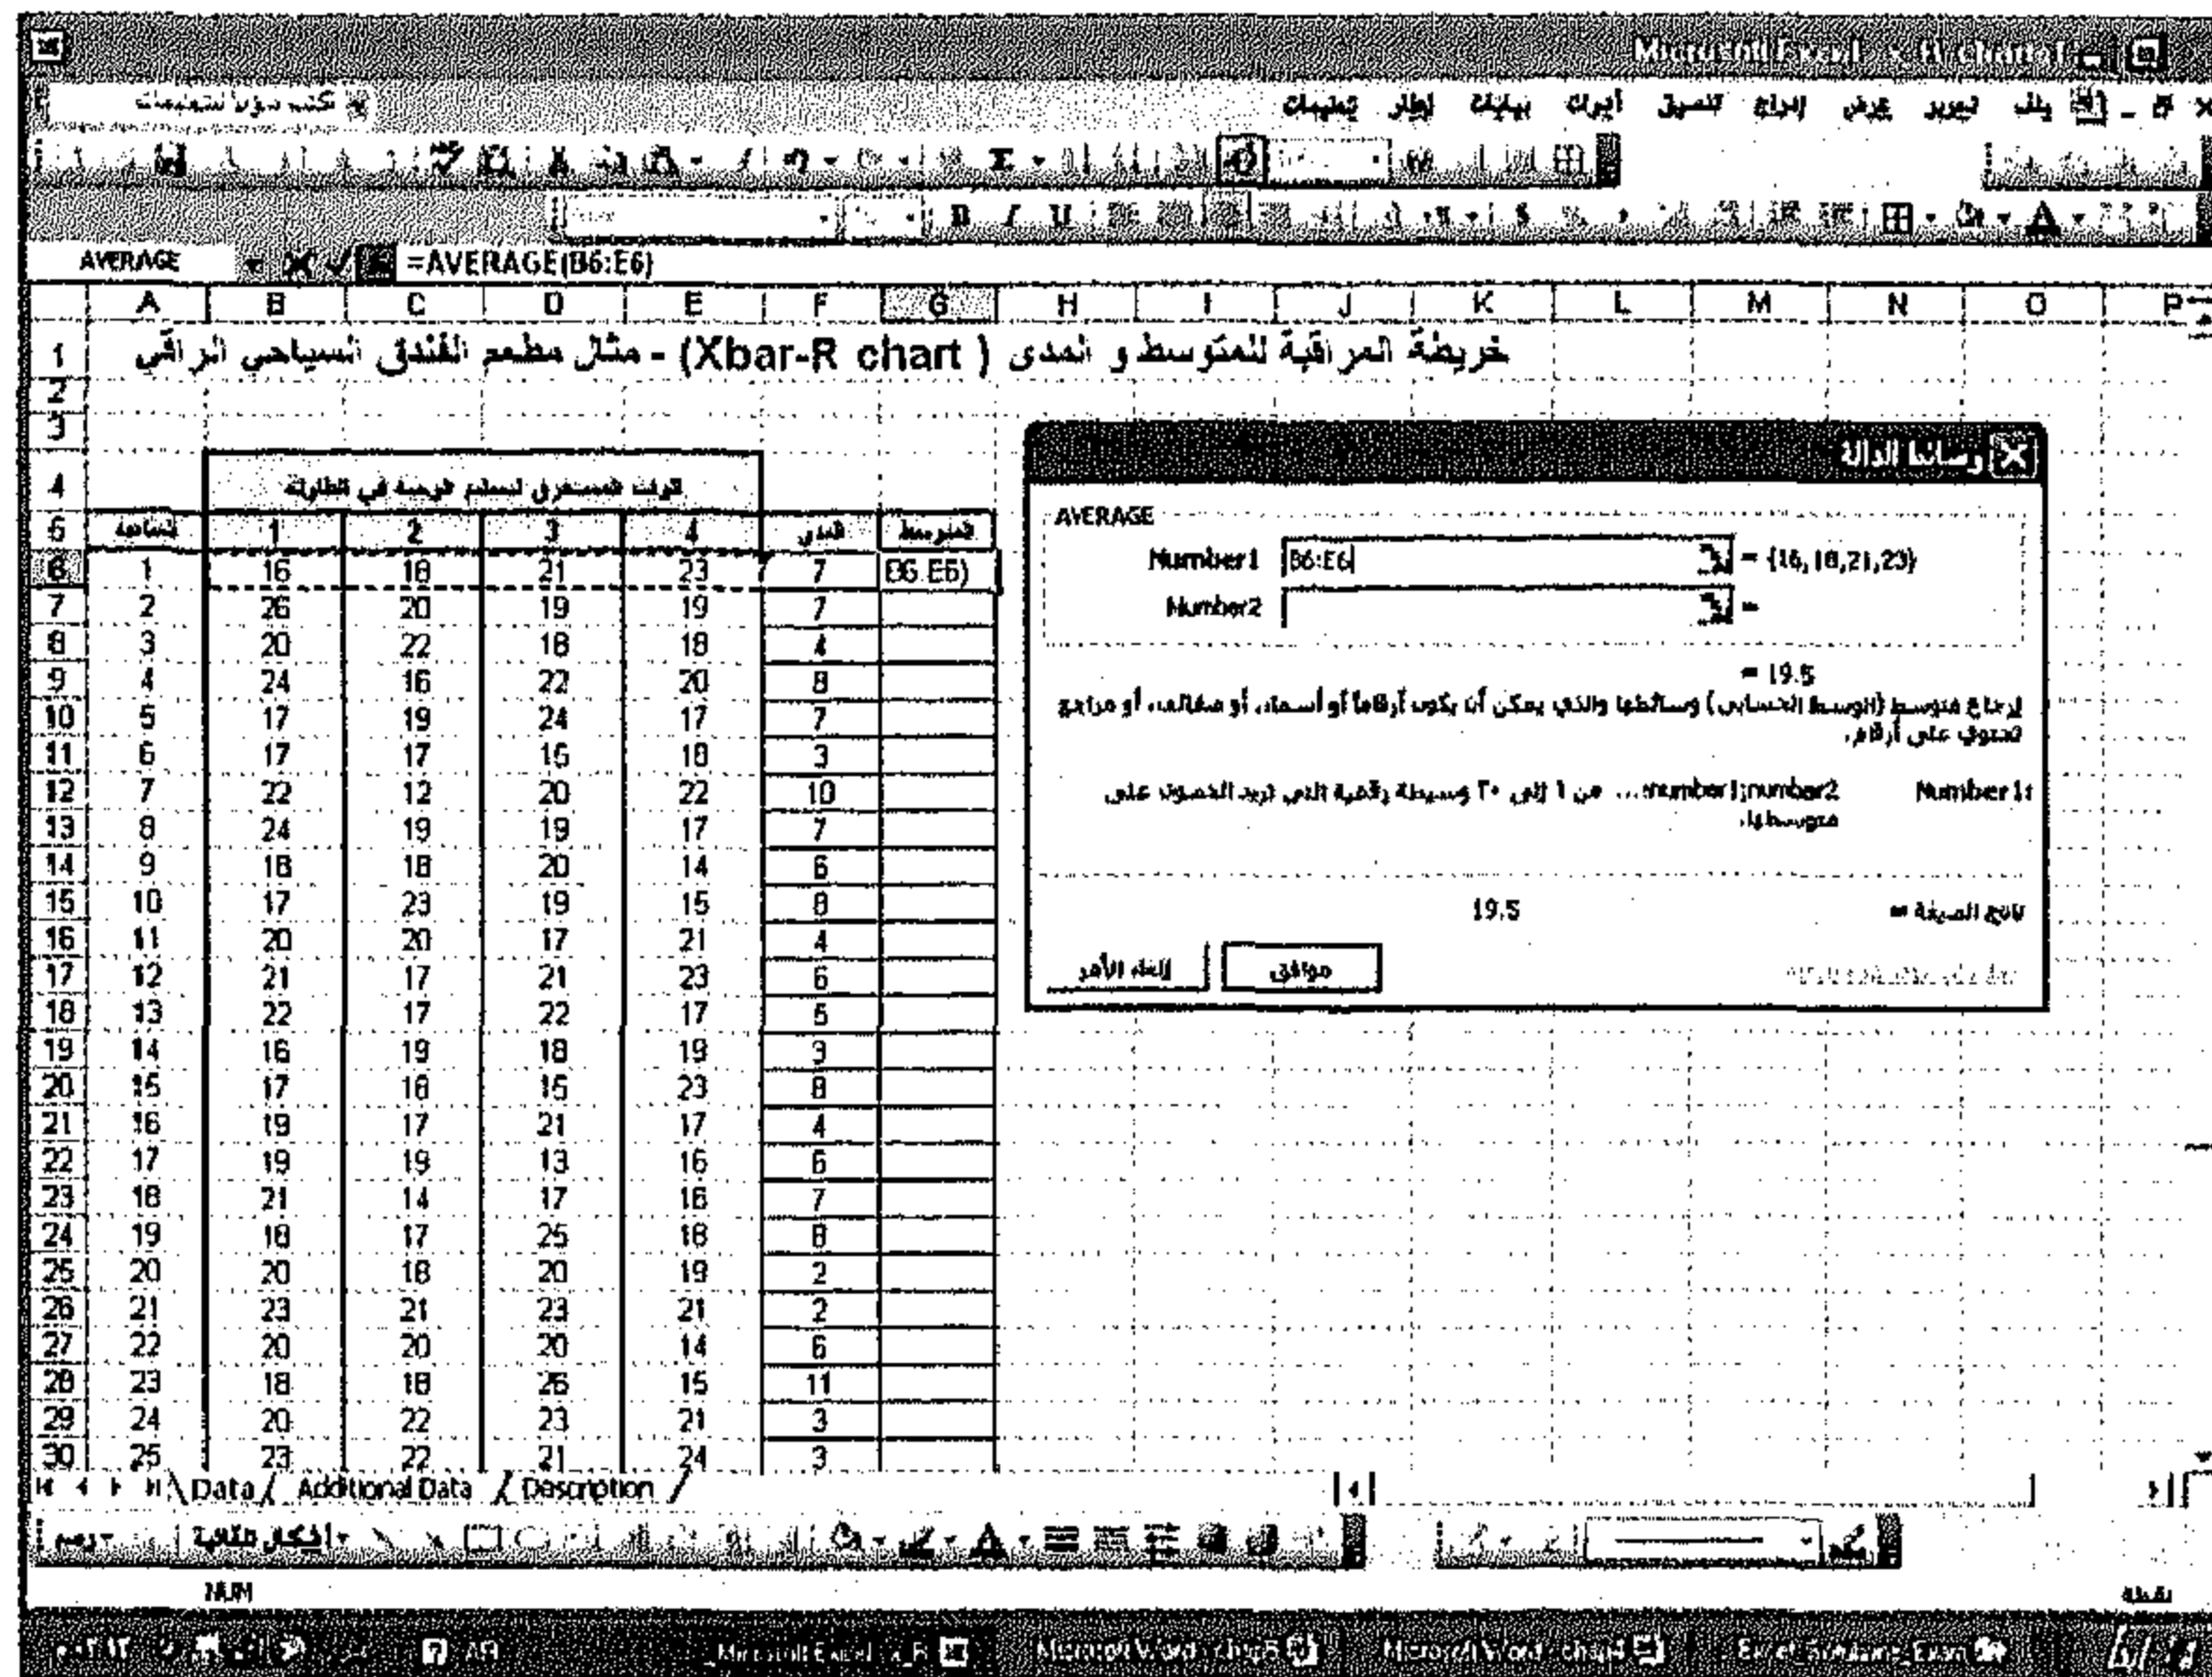 Microsoft Excel
ملف تحرير عرض إدراج تنسيق أدوات بيانات إطار تعليمات
AVERAGE =AVERAGE(B6:E6)
A B C D E F G H I J K L M N O P
1 خريطة المراقبة للمتوسط و المدى ( Xbar-R chart) - مثال مطعم الفندق السياحي الراقي
2
3
4 الوقت المستغرق لتسليم الوجبة في الطاولة
5 الساعة 1 2 3 4 المدى المتوسط
6 1 16 18 21 23 7 B6:E6)
7 2 26 20 19 19 7
8 3 20 22 18 18 4
9 4 24 16 22 20 8
10 5 17 19 24 17 7
11 6 17 17 15 18 3
12 7 22 12 20 22 10
13 8 24 19 19 17 7
14 9 18 18 20 14 6
15 10 17 23 19 15 8
16 11 20 20 17 21 4
17 12 21 17 21 23 6
18 13 22 17 22 17 5
19 14 16 19 18 19 3
20 15 17 18 15 23 8
21 16 19 17 21 17 4
22 17 19 19 13 16 6
23 18 21 14 17 18 7
24 19 18 17 25 18 8
25 20 20 18 20 19 2
26 21 23 21 23 21 2
27 22 20 20 20 14 6
28 23 18 18 26 15 11
29 24 20 22 23 21 3
30 25 23 22 21 24 3
وسائط الدالة
AVERAGE
Number1 B6:E6 = {16,18,21,23}
Number2 =
= 19.5
إرجاع متوسط (الوسط الحسابي) وسائطها والتي يمكن أن يكون أرقاماً أو أسماء، أو صفائف، أو مراجع
تحتوي على أرقام.
Number1: number1;number2;... من ١ إلى ٣٠ وسيطة رقمية التي تريد الحصول على
متوسطها.
ناتج الصيغة = 19.5
موافق إلغاء الأمر
Data Additional Data Description
رسم أشكال تلقائية
NUM نقطة